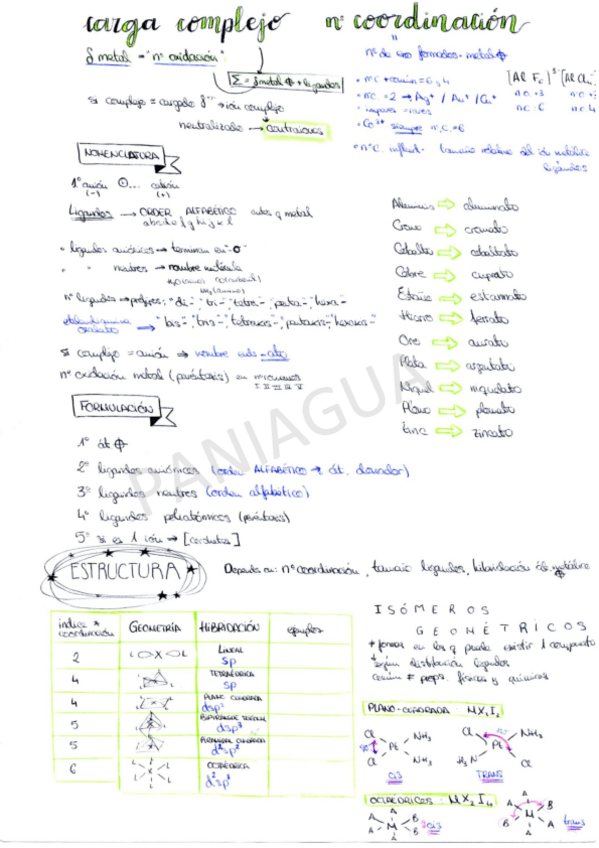 carga complejo nº coordinación
δ metal = "nº oxidación"
nº de uniones formadas · metal
Σ = δmetal + ligandos
si complejo = cargado → ión complejo
neutralizado → contraiones
• nc. + común = 6, 4
• nc. = 2 → Ag⁺ / Au⁺ / Cu⁺
• impares = raros
• Co³⁺ siempre n.c. = 6
n.o +3
n.c : 6
n.c 4
NOMENCLATURA
1º anión ... catión
(-) (+)
Ligandos → ORDEN ALFABÉTICO antes q metal
• ligandos aniónicos → terminan en "-o"
• " neutros → nombre natural
nº ligandos → prefijos: "di-", "tri-", "tetra-", "penta-", "hexa-"
etilendiamina
oxalato → "bis-", "tris-", "tetraquis-", "pentaquis-", "hexaquis-"
si complejo = anión → nombre met -ato
nº oxidación metal (paréntesis) en romanos
I II III IV V
Aluminio → aluminato
Cromo → cromato
Cobalto → cobaltato
Cobre → cuprato
Estaño → estannato
Hierro → ferrato
Oro → aurato
Plata → argentato
Níquel → niquelato
Plomo → plomato
Zinc → zincato
FORMULACIÓN
1º át
2º ligandos aniónicos (orden ALFABÉTICO át. donador)
3º ligandos neutros (orden alfabético)
4º ligandos poliatómicos (paréntesis)
5º si es 1 ión → [corchetes]
ESTRUCTURA
Depende en: nº coordinación, tamaño ligandos, hibridación át. metálico
índice coordinación GEOMETRÍA HIBRIDACIÓN ejemplos
2 L X L LINEAL
sp
4 TETRAÉDRICA
sp
4 PLANO CUADRADA
dsp²
5 BIPIRÁMIDE TRIGONAL
dsp³
5 PIRÁMIDE CUADRADA
d²sp²
6 OCTAÉDRICA
d²sp³
ISÓMEROS
GEOMÉTRICOS
* formas en las q puede existir 1 compuesto
* según distribución ligandos
≠ props. físicas y químicas
PLANO-CUADRADA :
Cl NH₃
90° Pt
Cl NH₃
cis
Cl NH₃
Pt
H₃N Cl
TRANS
OCTAÉDRICOS :
A A B B M A A cis
A A B M B A A trans
PANIAGUA